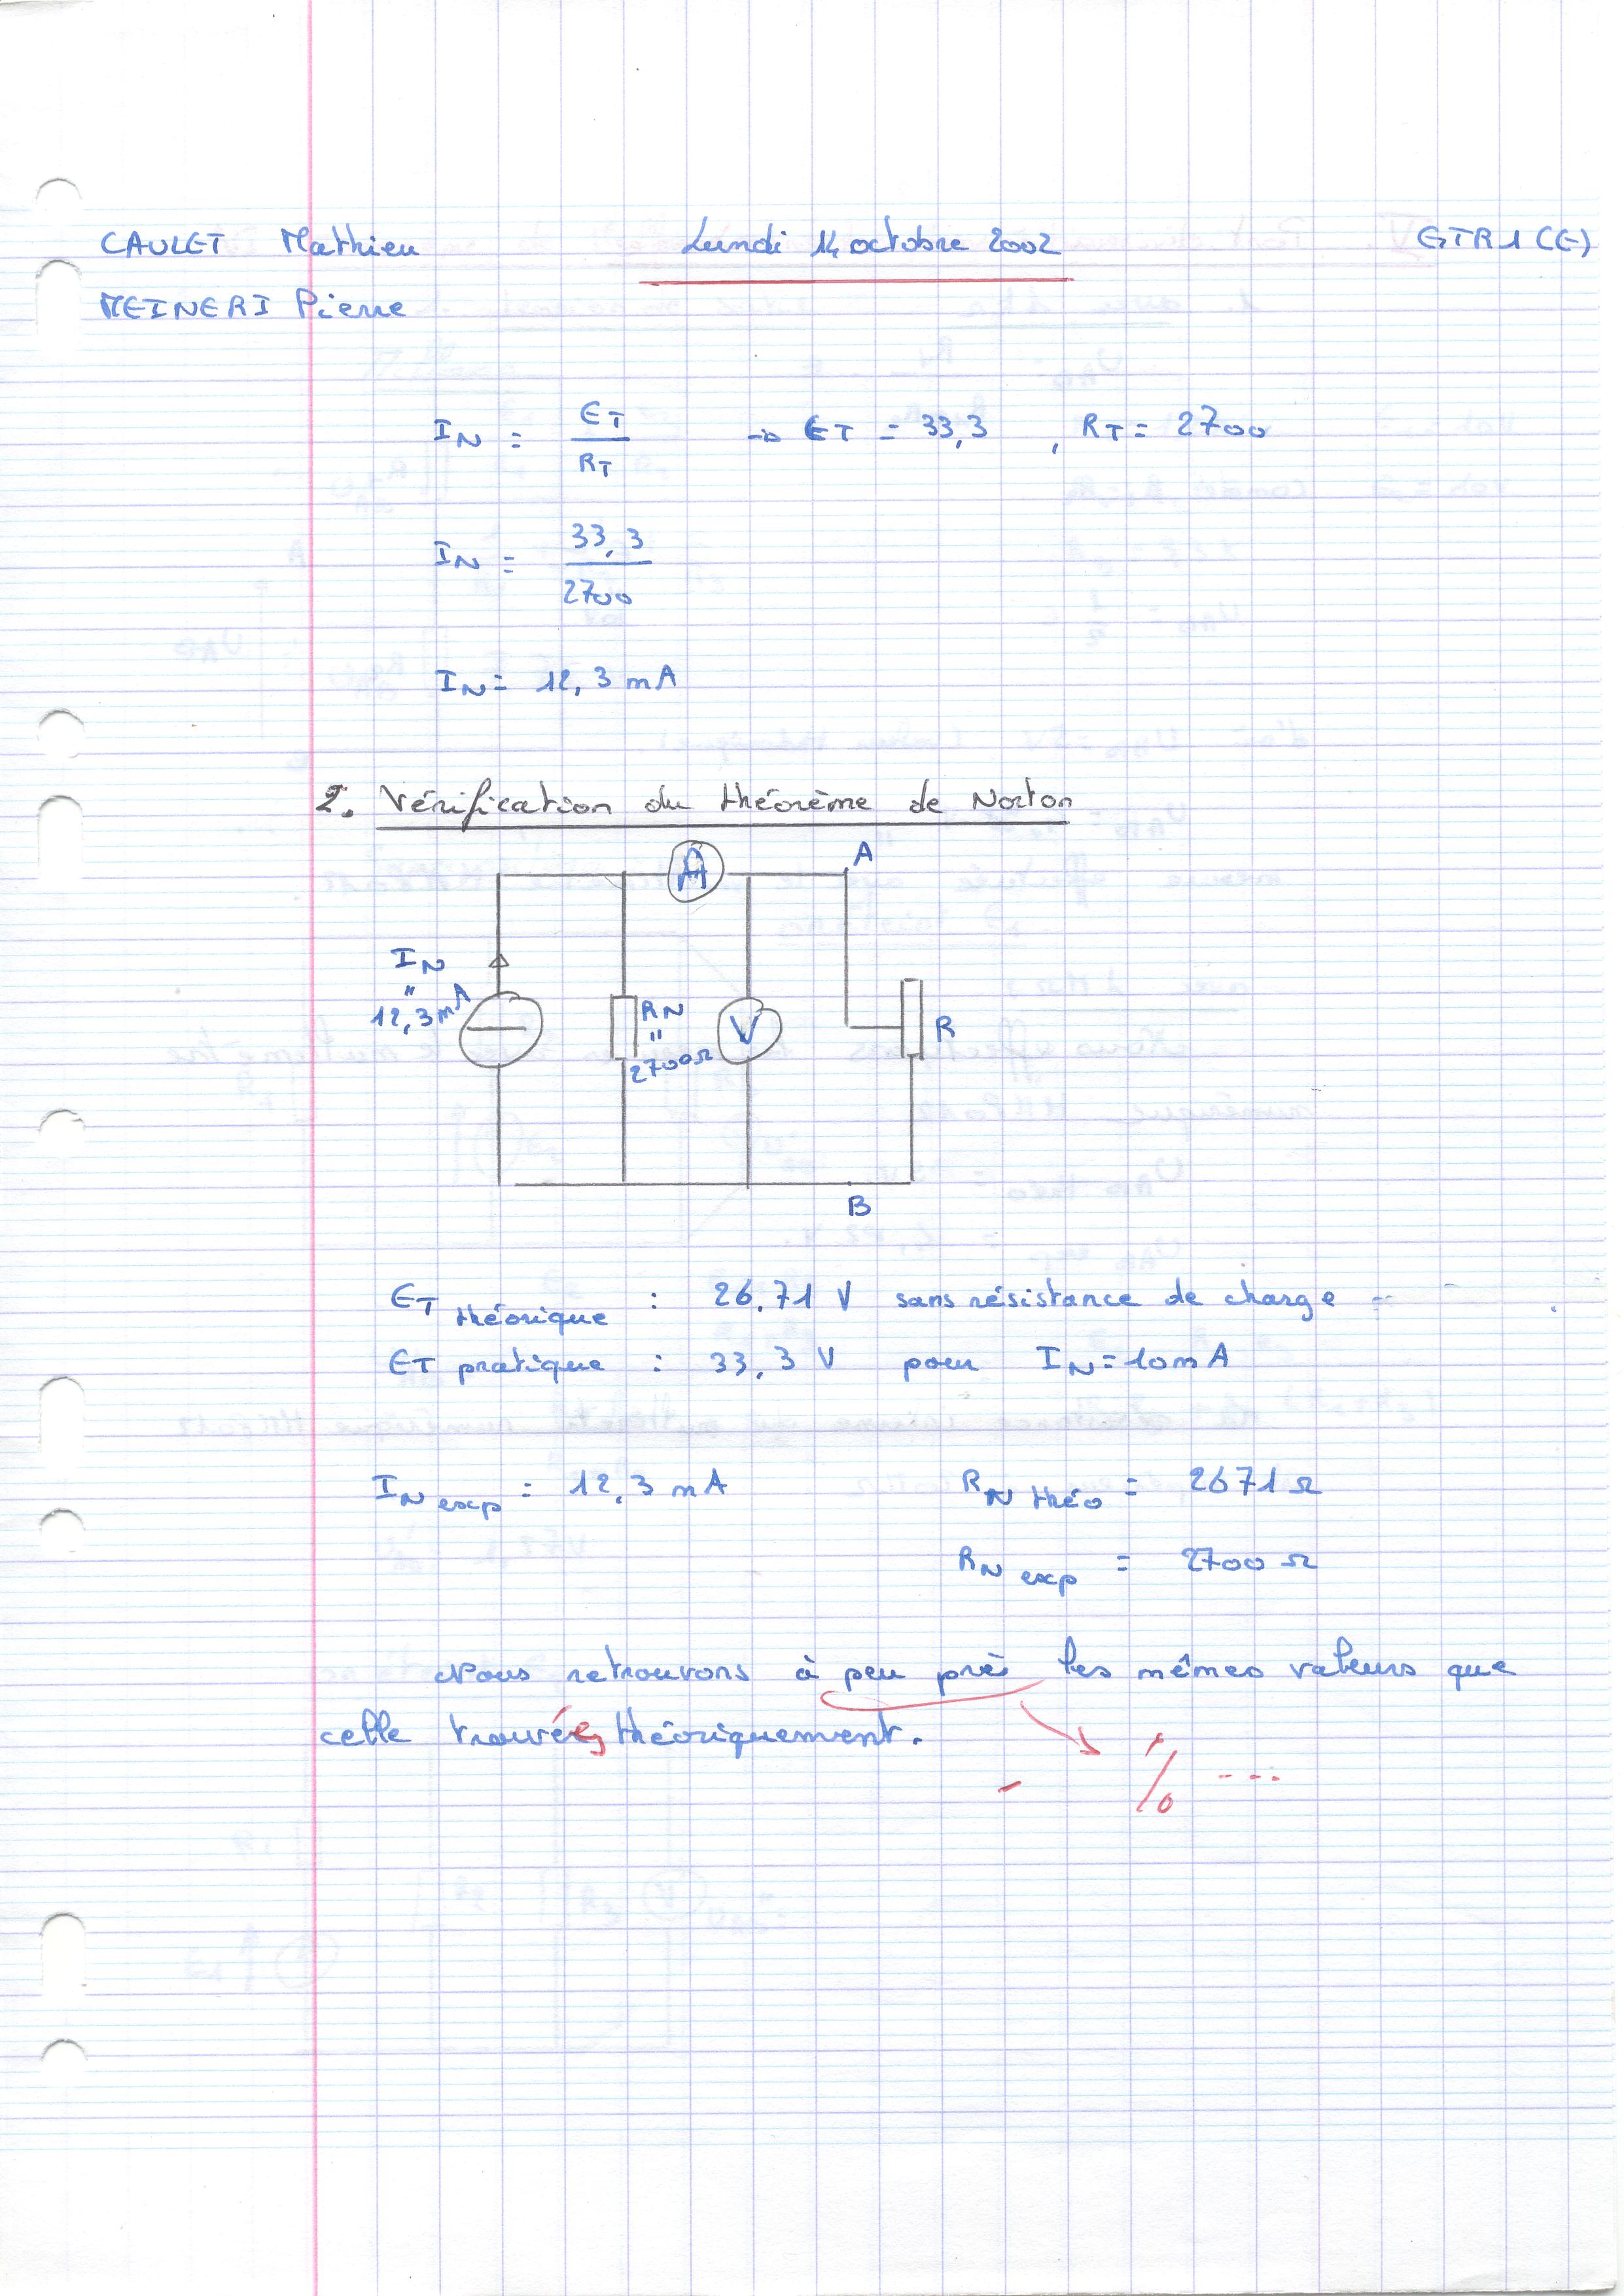 CAULET Mathieu Lundi 14 octobre 2002 GTR1 (E)
MEINERI Pierre
IN = ET / RT → ET = 33,3 , RT = 2700
IN = 33,3 / 2700
IN = 12,3 mA
2. Vérification du théorème de Norton
A
A
IN
"
12,3 mA
RN
"
2700 Ω
V
R
B
ET théorique : 26.71 V sans résistance de charge
ET pratique : 33,3 V pour IN = 10 mA
IN exp = 12,3 mA RN théo = 2671 Ω
RN exp = 2700 Ω
Nous retrouvons à peu près les mêmes valeurs que
celle trouvées théoriquement.
% ---